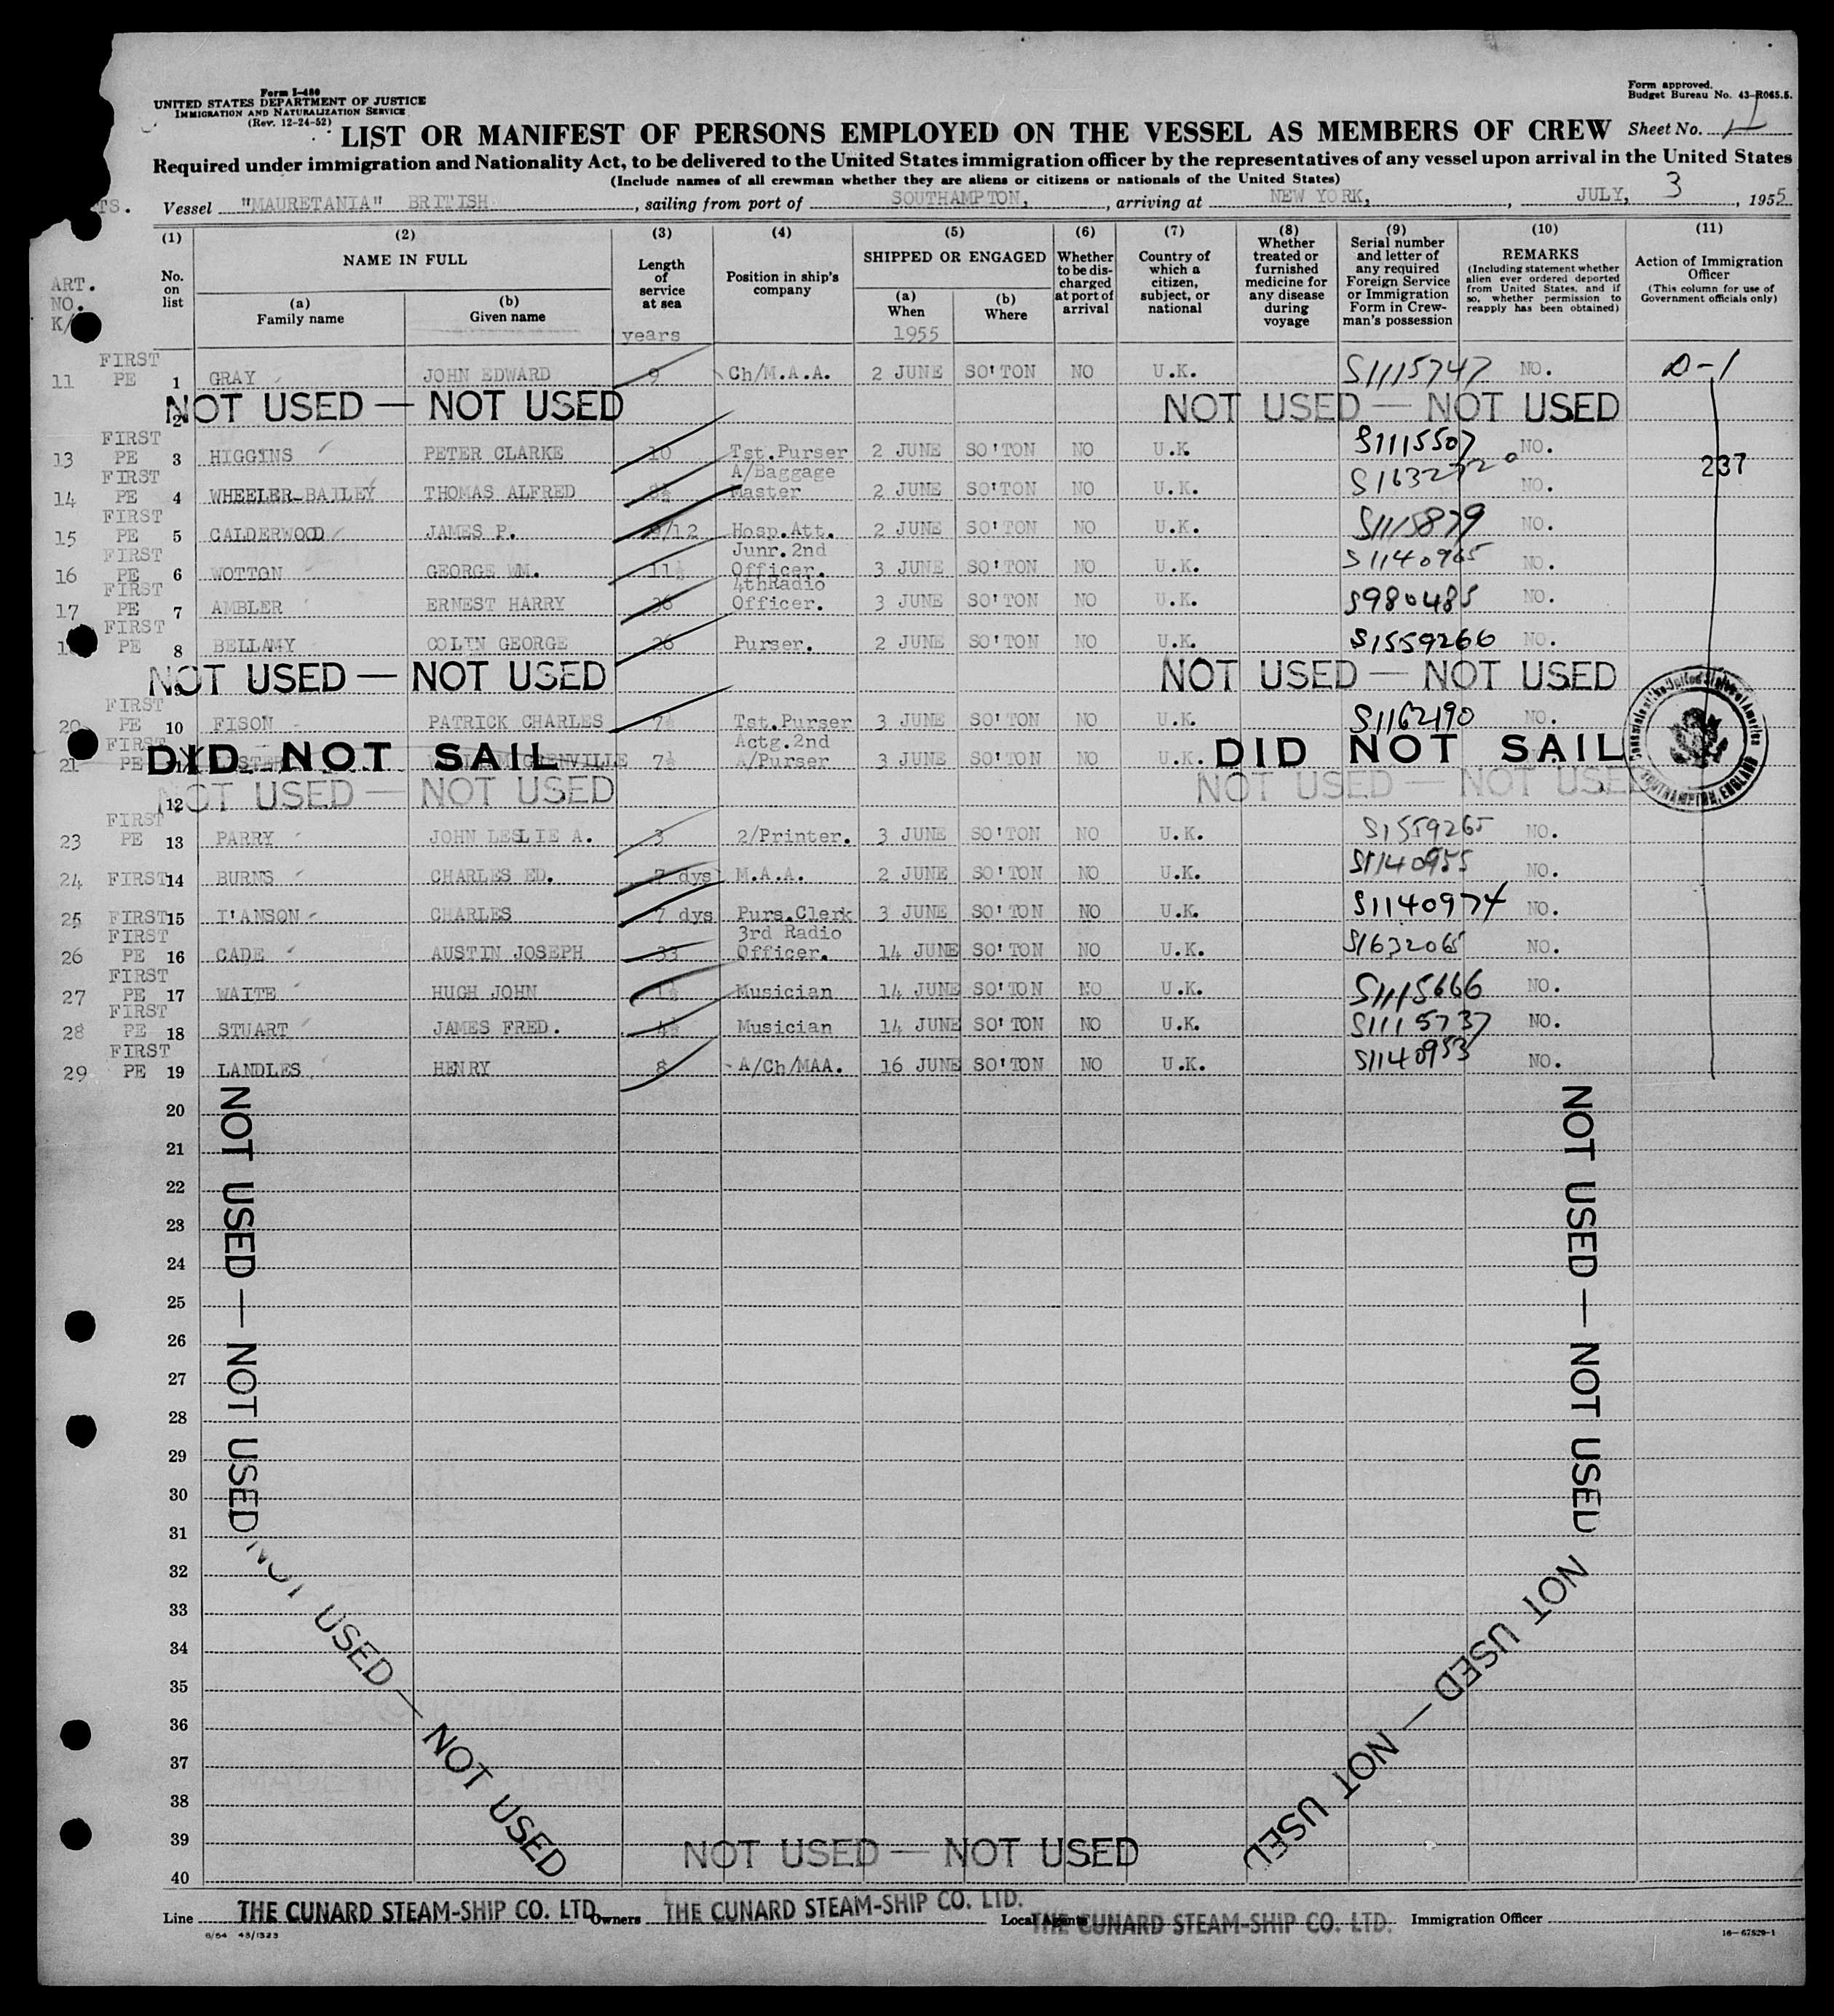 Form I-480
UNITED STATES DEPARTMENT OF JUSTICE
IMMIGRATION AND NATURALIZATION SERVICE
(Rev. 12-24-52)
Form approved.
Budget Bureau No. 43-R065.5.
LIST OR MANIFEST OF PERSONS EMPLOYED ON THE VESSEL AS MEMBERS OF CREW Sheet No.
Required under immigration and Nationality Act, to be delivered to the United States immigration officer by the representatives of any vessel upon arrival in the United States
(Include names of all crewman whether they are aliens or citizens or nationals of the United States)
TS. Vessel "MAURETANIA" BRITISH, sailing from port of SOUTHAMPTON, arriving at NEW YORK, JULY, 3, 1955
ART. NO. K/
(1) No. on list
(2) NAME IN FULL
(a) Family name
(b) Given name
(3) Length of service at sea
years
(4) Position in ship's company
(5) SHIPPED OR ENGAGED
(a) When
1955
(b) Where
(6) Whether to be discharged at port of arrival
(7) Country of which a citizen, subject, or national
(8) Whether treated or furnished medicine for any disease during voyage
(9) Serial number and letter of any required Foreign Service or Immigration Form in Crewman's possession
(10) REMARKS
(Including statement whether alien ever ordered deported from United States, and if so, whether permission to reapply has been obtained)
(11) Action of Immigration Officer
(This column for use of Government officials only)
11 FIRST PE 1 GRAY JOHN EDWARD 9 Ch/M.A.A. 2 JUNE SO'TON NO U.K. S1115747 NO. D-1
2 NOT USED — NOT USED NOT USED — NOT USED
13 FIRST PE 3 HIGGINS PETER CLARKE 10 Tst.Purser 2 JUNE SO'TON NO U.K. S1115507 NO.
237
14 FIRST PE 4 WHEELER-BAILEY THOMAS ALFRED A/Baggage Master 2 JUNE SO'TON NO U.K. NO.
15 FIRST PE 5 CALDERWOOD JAMES P. 9/12 Hosp.Att. 2 JUNE SO'TON NO U.K. S1115879 NO.
16 FIRST PE 6 WOTTON GEORGE WM. 11½ Junr.2nd Officer. 3 JUNE SO'TON NO U.K. S1140965 NO.
17 FIRST PE 7 AMBLER ERNEST HARRY 36 4thRadio Officer. 3 JUNE SO'TON NO U.K. S980485 NO.
FIRST PE 8 BELLAMY COLIN GEORGE 26 Purser. 2 JUNE SO'TON NO U.K. S1559266 NO.
NOT USED — NOT USED NOT USED — NOT USED
20 FIRST PE 10 FISON PATRICK CHARLES 7½ Tst.Purser 3 JUNE SO'TON NO U.K. S1162190 NO.
21 FIRST PE DID NOT SAIL 7½ Actg.2nd A/Purser 3 JUNE SO'TON NO U.K. DID NOT SAIL
12 NOT USED — NOT USED NOT USED — NOT USED
23 FIRST PE 13 PARRY JOHN LESLIE A. 3 2/Printer. 3 JUNE SO'TON NO U.K. S1559265 NO.
24 FIRST 14 BURNS CHARLES ED. 7 dys M.A.A. 2 JUNE SO'TON NO U.K. S1140955 NO.
25 FIRST 15 I'ANSON CHARLES 7 dys Purs.Clerk 3 JUNE SO'TON NO U.K. S1140974 NO.
26 FIRST PE 16 CADE AUSTIN JOSEPH 33 3rd Radio Officer. 14 JUNE SO'TON NO U.K. S1632065 NO.
27 FIRST PE 17 WAITE HUGH JOHN 1½ Musician 14 JUNE SO'TON NO U.K. S1115666 NO.
28 FIRST PE 18 STUART JAMES FRED. 4½ Musician 14 JUNE SO'TON NO U.K. S1115737 NO.
29 FIRST PE 19 LANDLES HENRY 8 A/Ch/MAA. 16 JUNE SO'TON NO U.K. S1140953 NO.
20
21
22
23
24
25
26
27
28
29
30
31
32
33
34
35
36
37
38
39
40
NOT USED — NOT USED
NOT USED — NOT USED
NOT USED — NOT USED
NOT USED — NOT USED
NOT USED — NOT USED
Line THE CUNARD STEAM-SHIP CO. LTD. Owners THE CUNARD STEAM-SHIP CO. LTD. Local Agents THE CUNARD STEAM-SHIP CO. LTD. Immigration Officer
6/54 43/1323
16-67529-1